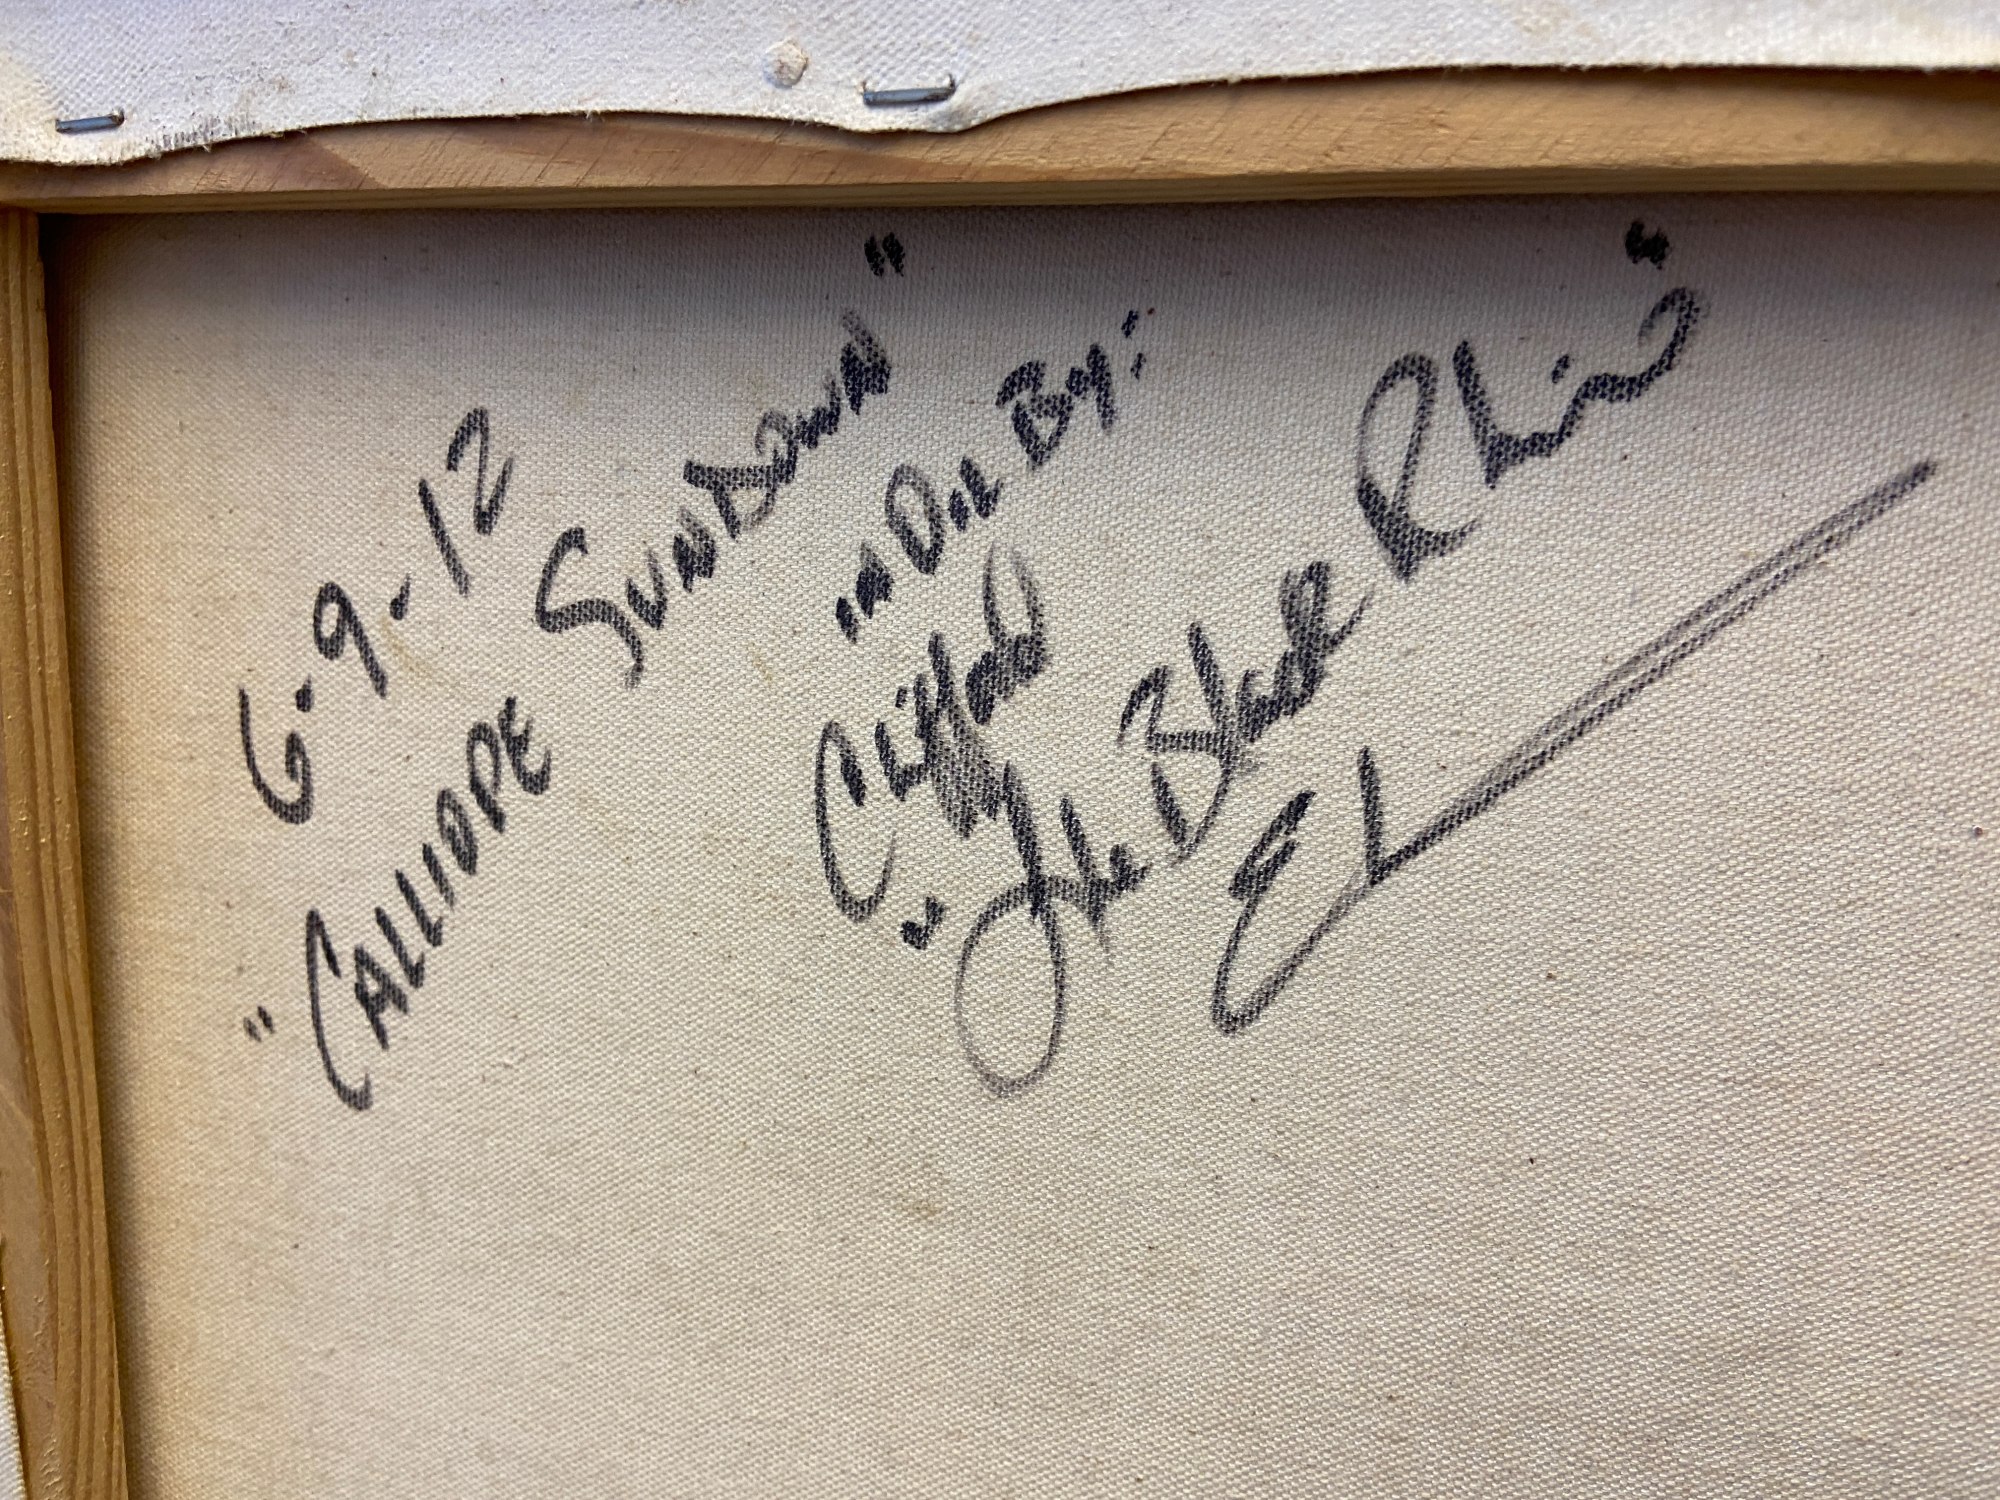 6-9-12
"CALLIOPE SUNDOWN"
in Oil By:
Clifford
"The Black Rhino"